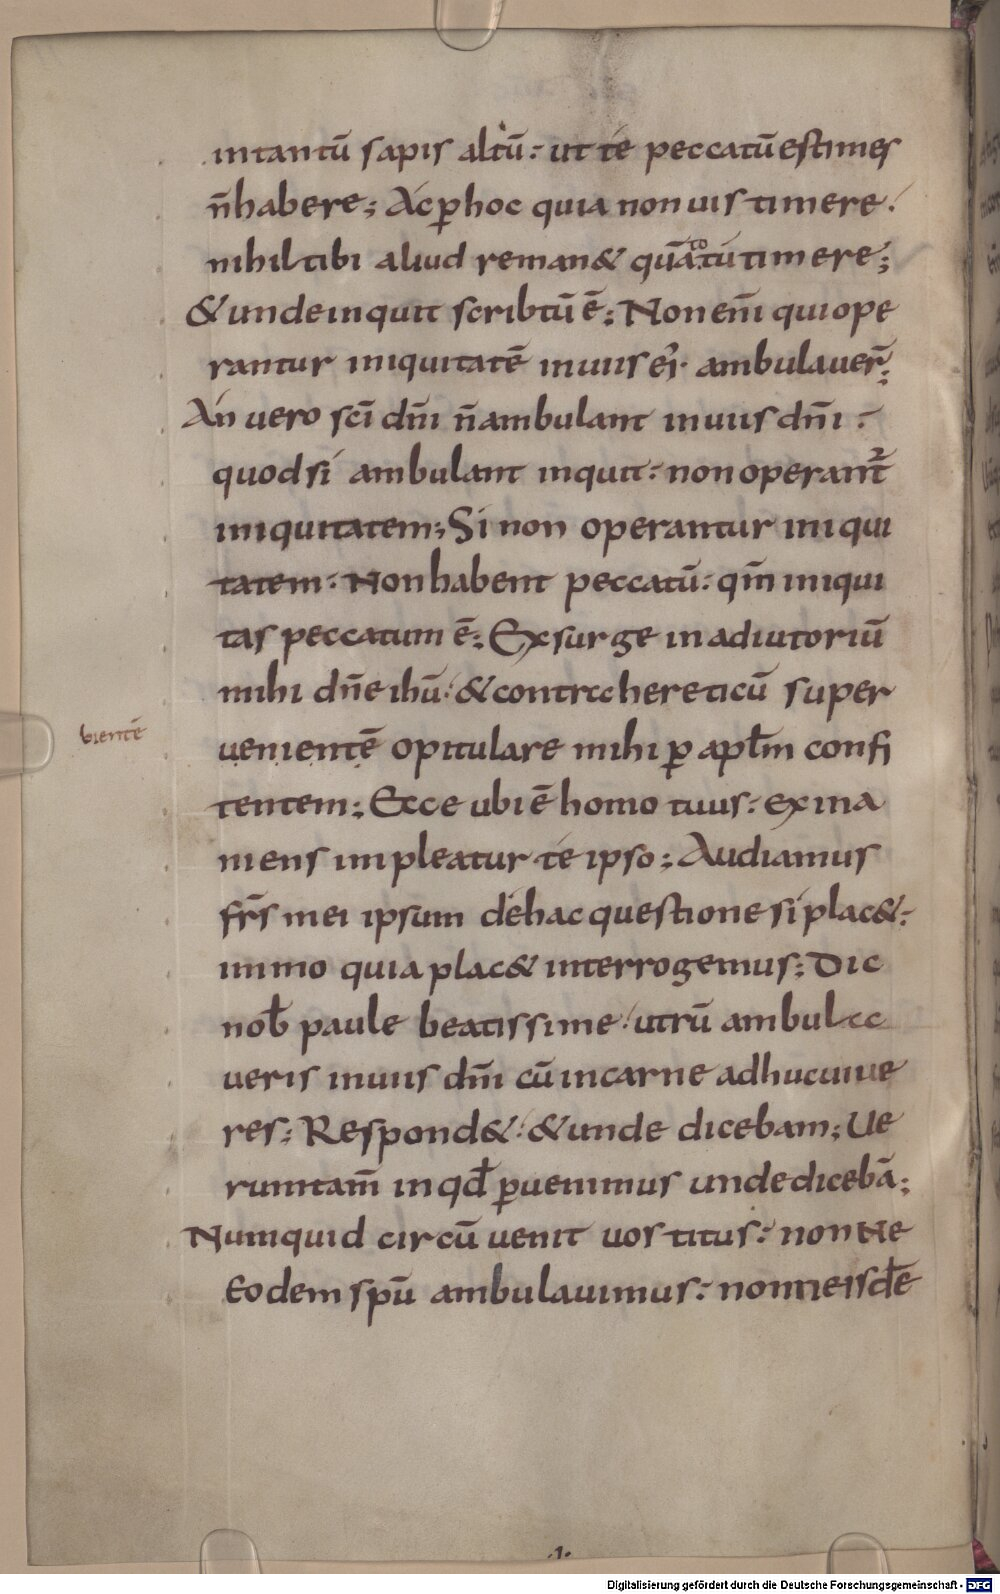 intantū sapis altū: ut te peccatū estimes
n̄ habere; Ac p̱ hoc quia non uis timere.
nihil tibi aliud reman& quā to tu timere;
& unde inquit scribtū ē; Non eni̅ qui ope
rantur iniquitatē in uiis ei᷒· ambulauer̄;
An vero sc̄i dn̄i n̄ ambulant in uiis dn̄i:
quod si ambulant inquit: non operant᷑
iniquitatem; Si non operantur iniqui
tatem: Non habent peccatū: qm̄ iniqui
tas peccatum ē; Exsurge in adiutoriū
mihi dn̄e ihū: & contra hereticū super
bientē
uenientē opitulare mihi p̱ apl̄m confi
tentem; Ecce ubi ē homo tuus: ex ina
niens impleatur te ipso; Audiamus
fr̄s mei ipsum de hac questione si plac&:
immo quia plac& interrogemus; Dic
nob̄ paule beatissime: utrū ambula
ueris in uiis dn̄i cū in carne adhuc uiue
res; Respond&: & unde dicebam; Ue
rumtam̄ in qd̄ p̱uenimus unde dicebā;
Numquid circūuenit uos titus: nonne
Eodem sp̄u ambulauimus: nonne eisdē
·1·
Digitalisierung gefördert durch die Deutsche Forschungsgemeinschaft - DFG